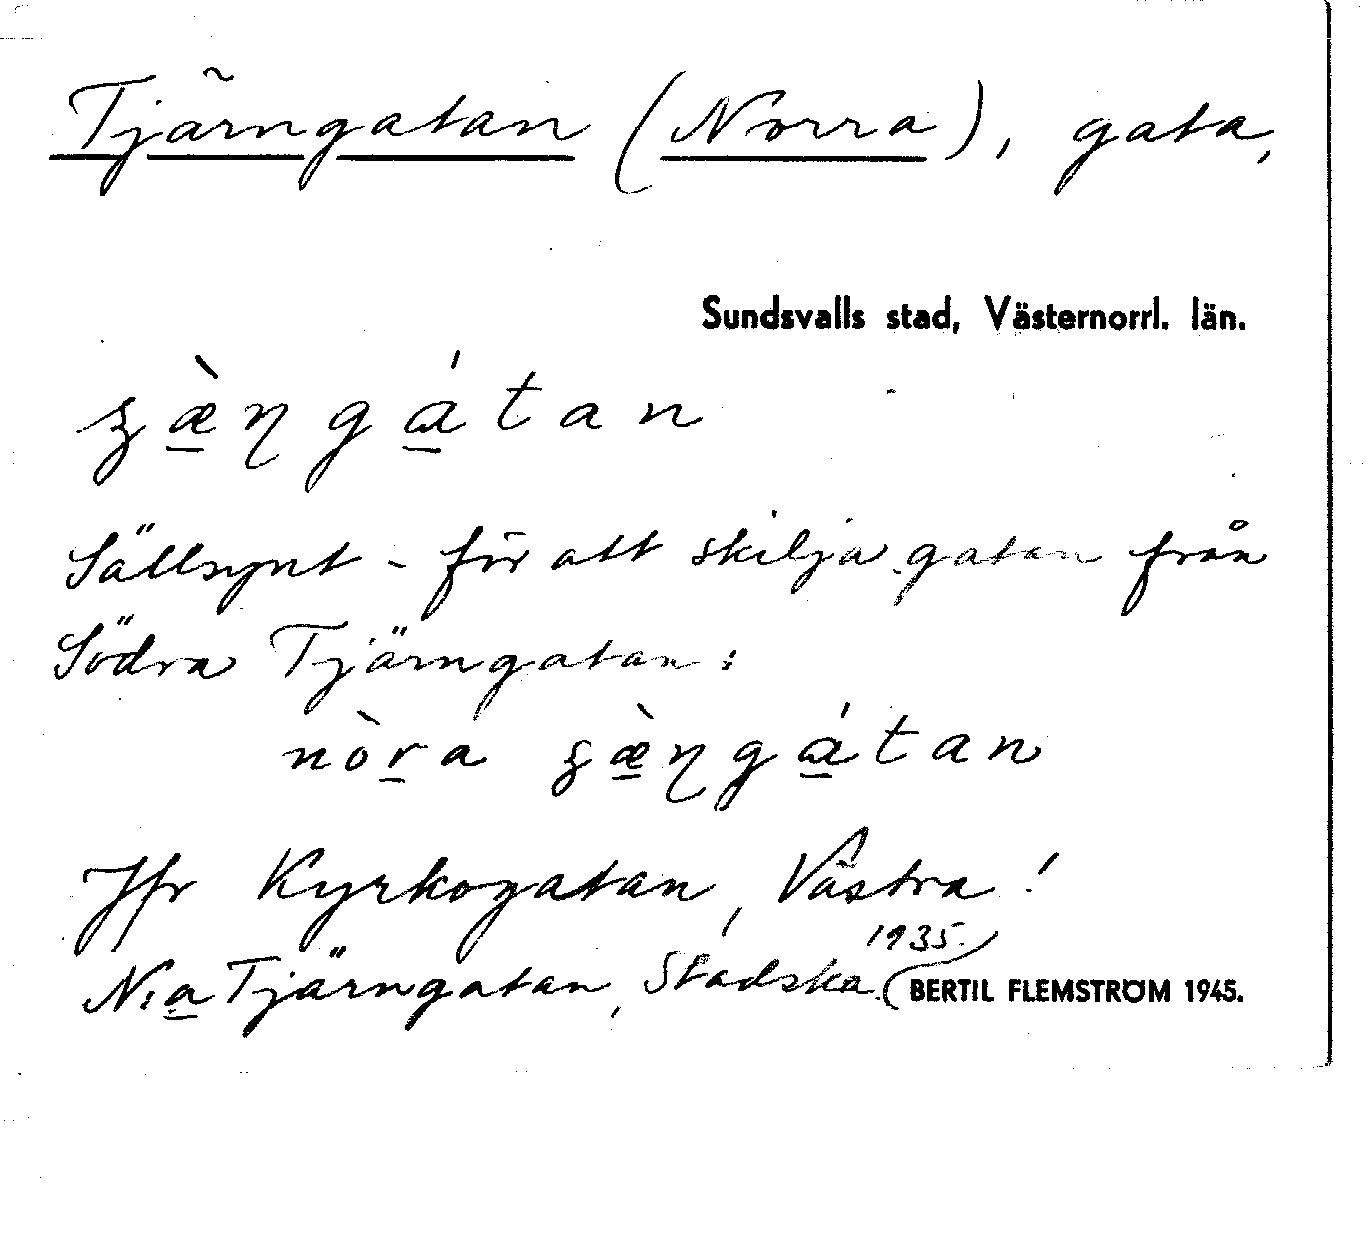 Tjärngatan (Norra), gata,
Sundsvalls stad, Västernorrl. län.
Sällsynt - för att skilja gatan från
Södra Tjärngatan:
Jfr Kyrkogatan, Västra!
1935.
N:a Tjärngatan, Stadska. BERTIL FLEMSTRÖM 1945.